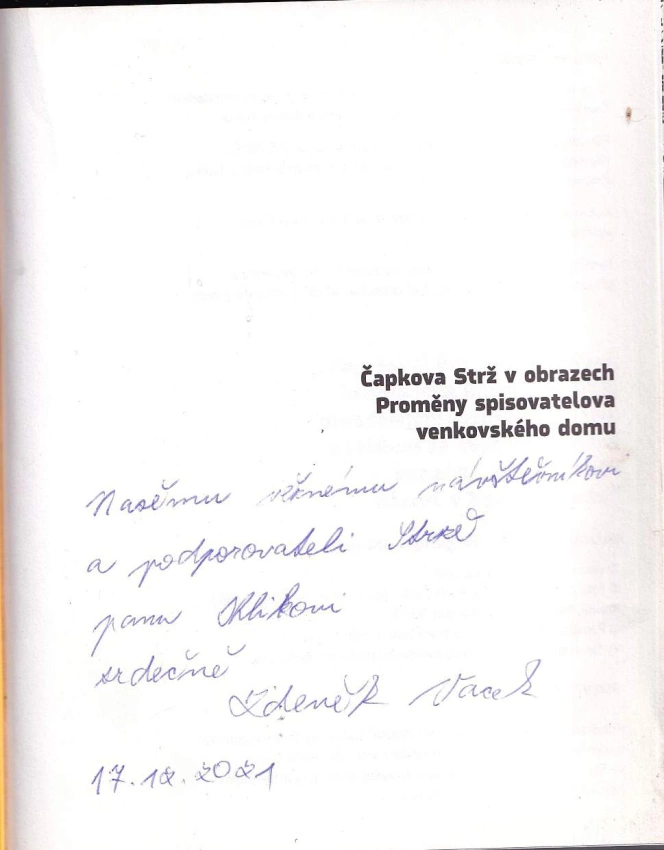 Čapkova Strž v obrazech
Proměny spisovatelova
venkovského domu
Našemu věrnému návštěvníkovi
a podporovateli Strže
panu Klikovi
srdečně
Zdeněk Vacek
17.12.2021